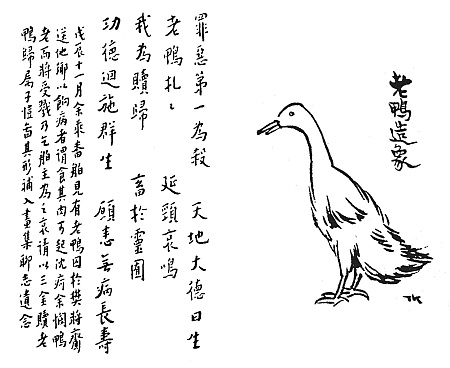 老鴨造象
罪惡第一為殺 天地大德曰生
老鴨札〻 延頸哀鳴
我為贖歸 畜於靈囿
功德迴施群生 願悉無病長壽
戊辰十一月余乘番舶見有老鴨囚於樊將齎
送他鄉以餉病者謂食其肉可起沈疴余憫鴨
老而將受戮乃乞舶主為之哀請以三金贖老
鴨歸屬子愷啚其形補入畫集聊志遺念
TK